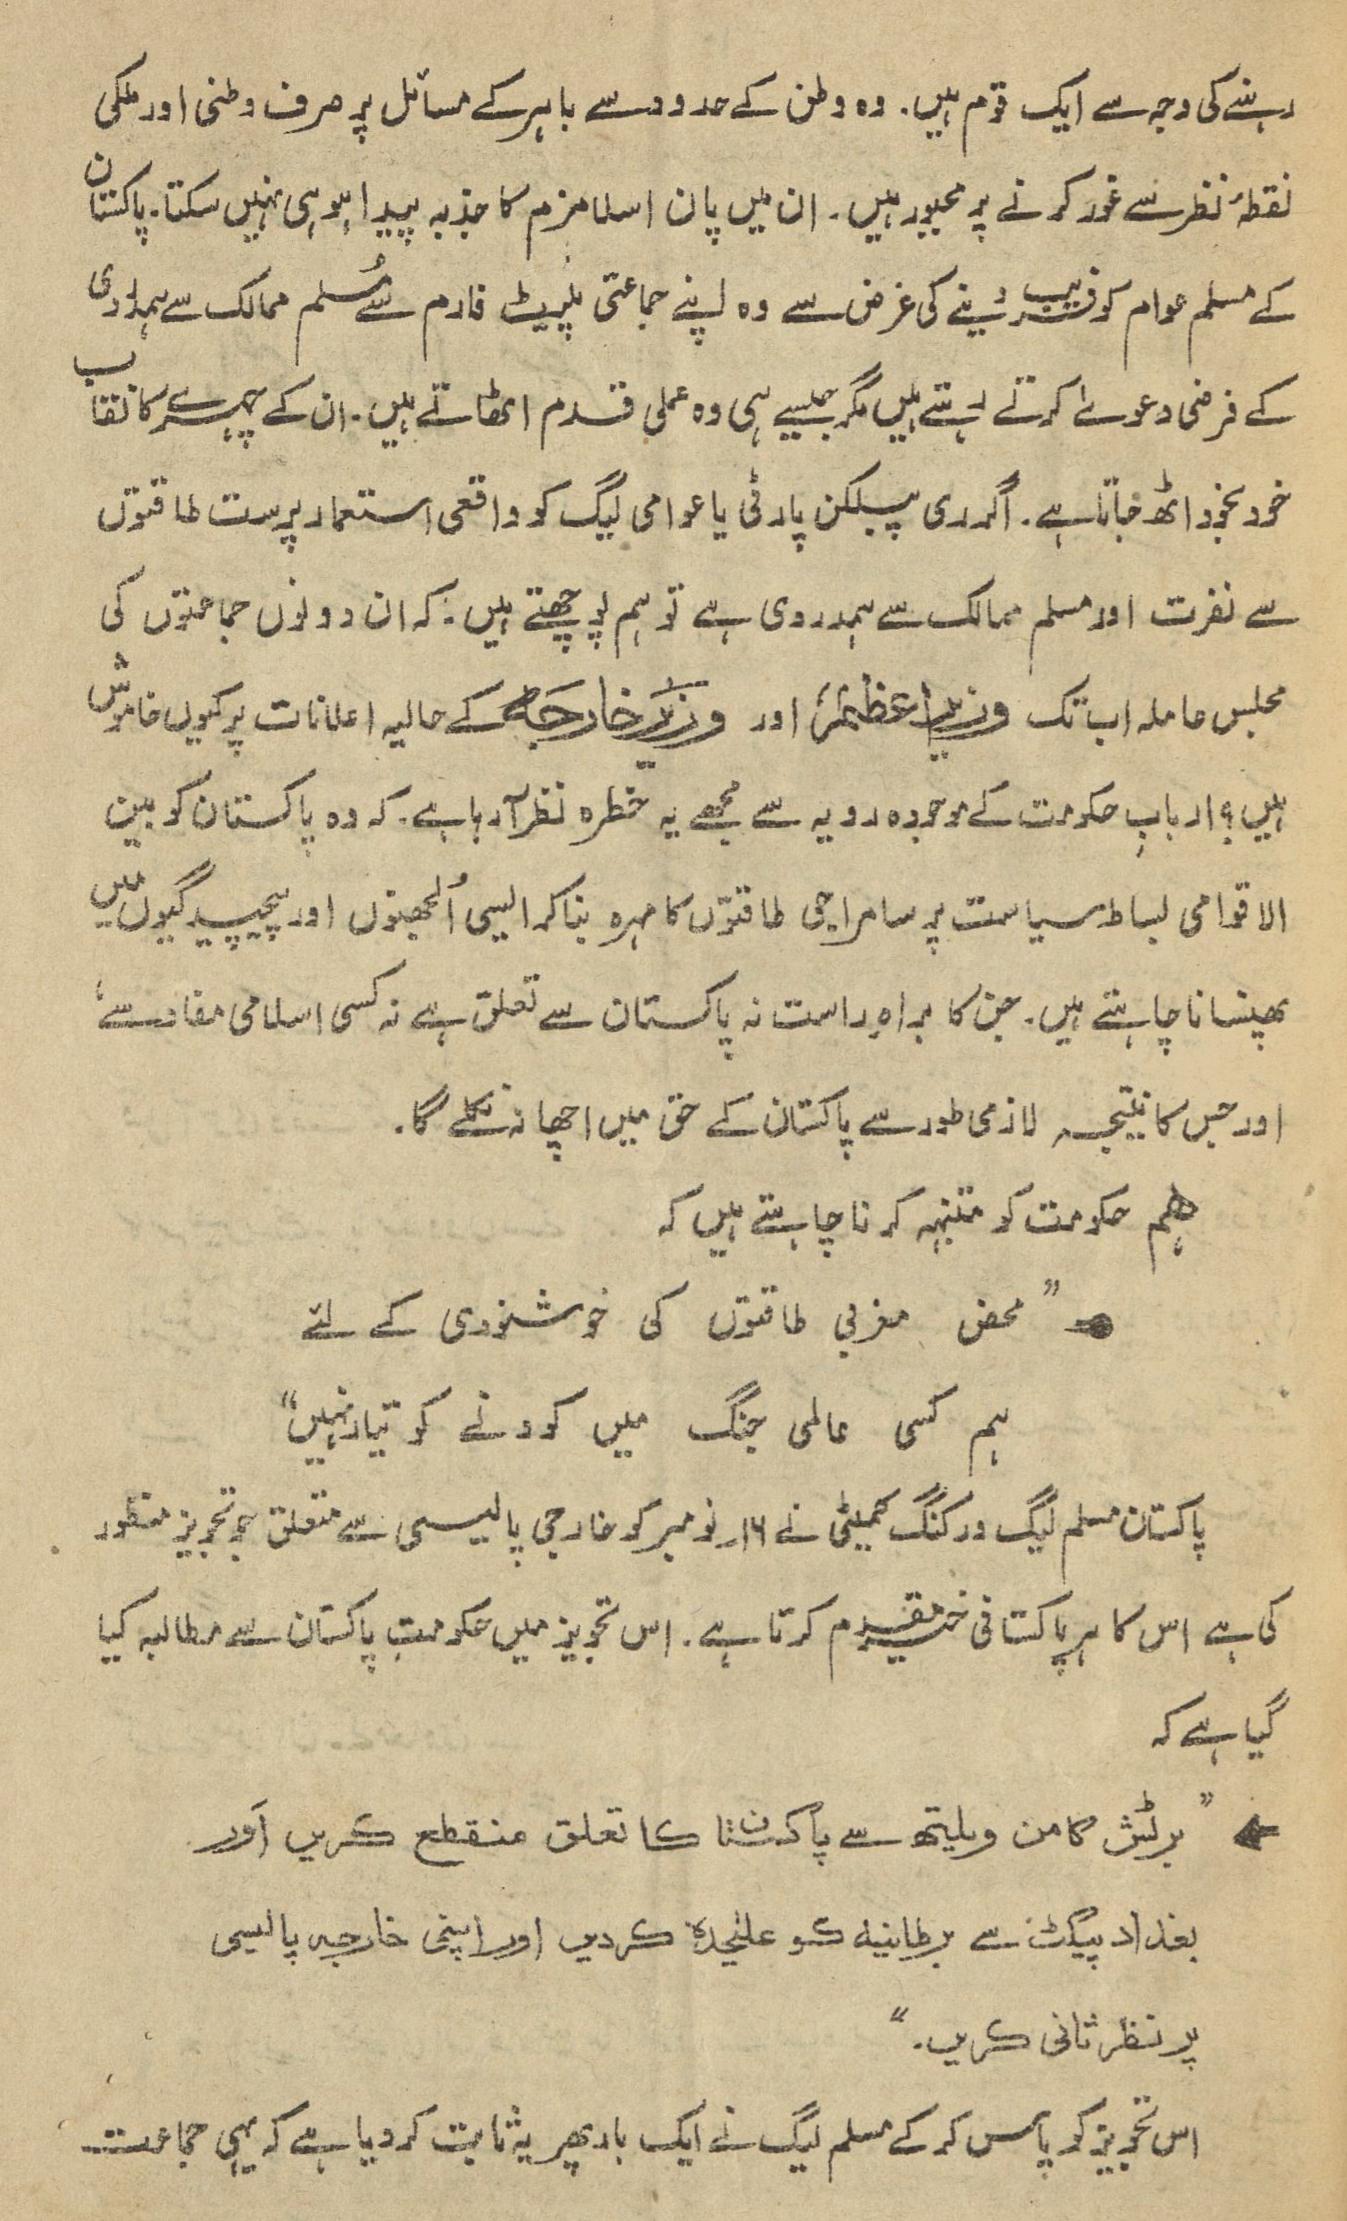 رہنے کی وجہ سے ایک قوم ہیں. وہ وطن کے حدود سے باہر کے مسائل پر صرف وطنی اور ملکی
نقطۂ نظر سے غور کرنے پر مجبور ہیں. ان میں پان اسلامزم کا جذبہ پیدا ہو ہی نہیں سکتا. پاکستان
کے مسلم عوام کو فریب دینے کی غرض سے وہ اپنے جماعتی پلیٹ فارم سے مُسلم ممالک سے ہمدردی
کے فرضی دعوے کرتے رہتے ہیں مگر جیسے ہی وہ عملی قدم اٹھاتے ہیں. ان کے چہرے کا نقاب
خود بخود اٹھ جاتا ہے. اگر ری پبلکن پارٹی یا عوامی لیگ کو واقعی استعمار پرست طاقتوں
سے نفرت اور مسلم ممالک سے ہمدردی ہے تو ہم پوچھتے ہیں. کہ ان دونوں جماعتوں کی
مجلس عاملہ اب تک وزیر اعظم اور وزیر خارجہ کے حالیہ اعلانات پر کیوں خاموش
ہیں؟ اربابِ حکومت کے موجودہ رویہ سے مجھے یہ خطرہ نظر آ رہا ہے. کہ وہ پاکستان کو بین
الاقوامی بساط سیاست پر سامراجی طاقتوں کا مہرہ بنا کر ایسی اُلجھنوں اور پیچیدگیوں میں
پھنسانا چاہتے ہیں. جن کا براہِ راست نہ پاکستان سے تعلق ہے نہ کسی اسلامی مفاد سے؛
اور جس کا نتیجہ لازمی طور سے پاکستان کے حق میں اچھا نہ نکلے گا.
ہم حکومت کو متنبہہ کرنا چاہتے ہیں کہ
”محض مغربی طاقتوں کی خوشنودی کے لئے
ہم کسی عالمی جنگ میں کودنے کو تیار نہیں“
پاکستان مسلم لیگ ورکنگ کمیٹی نے ۱۶ر نومبر کو خارجی پالیسی سے متعلق جو تجویز منظور
کی ہے اس کا ہر پاکستانی خیر مقدم کرتا ہے. اس تجویز میں حکومتِ پاکستان سے مطالبہ کیا
گیا ہے کہ
”برٹش کامن ویلیتھ سے پاکستان کا تعلق منقطع کریں اَور
بغداد پیکٹ سے برطانیہ کو علیٰحدہ کردیں اور اپنی خارجہ پالیسی
پر نظر ثانی کریں.“
اس تجویز کو پاس کر کے مسلم لیگ نے ایک بار پھر یہ ثابت کر دیا ہے کہ یہی جماعت